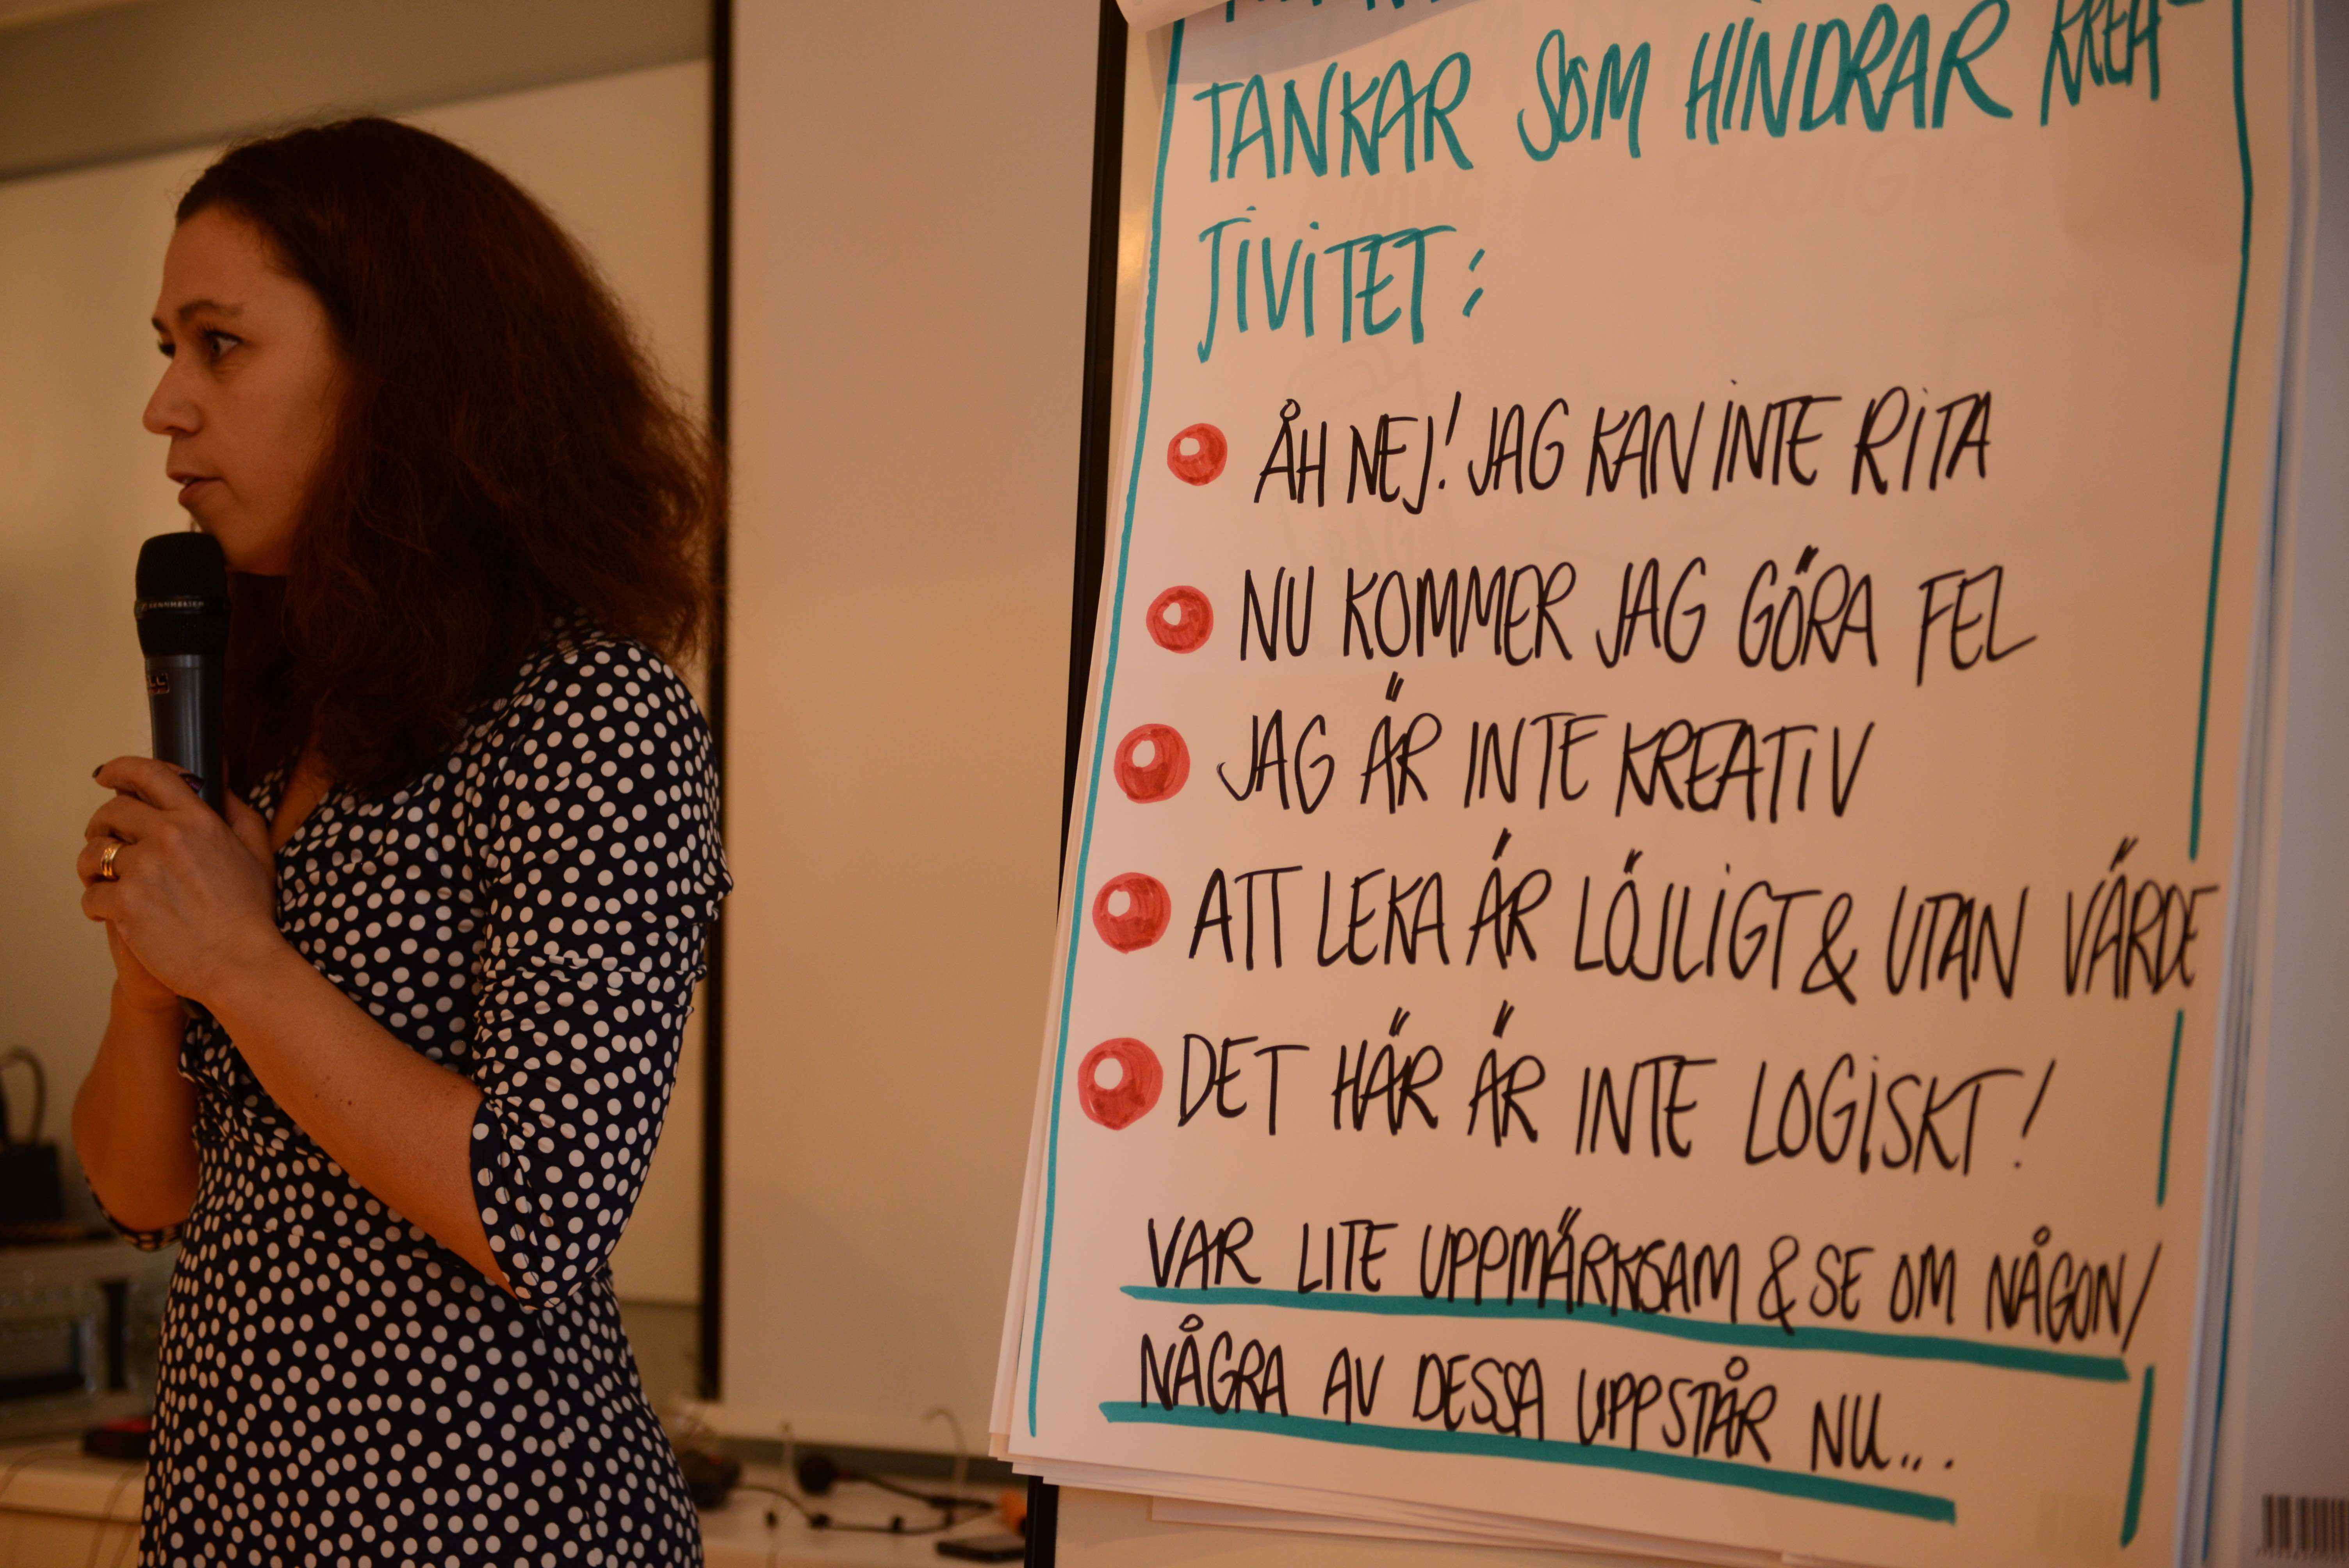 TANKAR SOM HINDRAR KREA-
TIVITET:
ÅH NEJ! JAG KAN INTE RITA
NU KOMMER JAG GÖRA FEL
JAG ÄR INTE KREATIV
ATT LEKA ÄR LÖJLIGT & UTAN VÄRDE
DET HÄR ÄR INTE LOGISKT!
VAR LITE UPPMÄRKSAM & SE OM NÅGON/
NÅGRA AV DESSA UPPSTÅR NU...
SENNHEISER